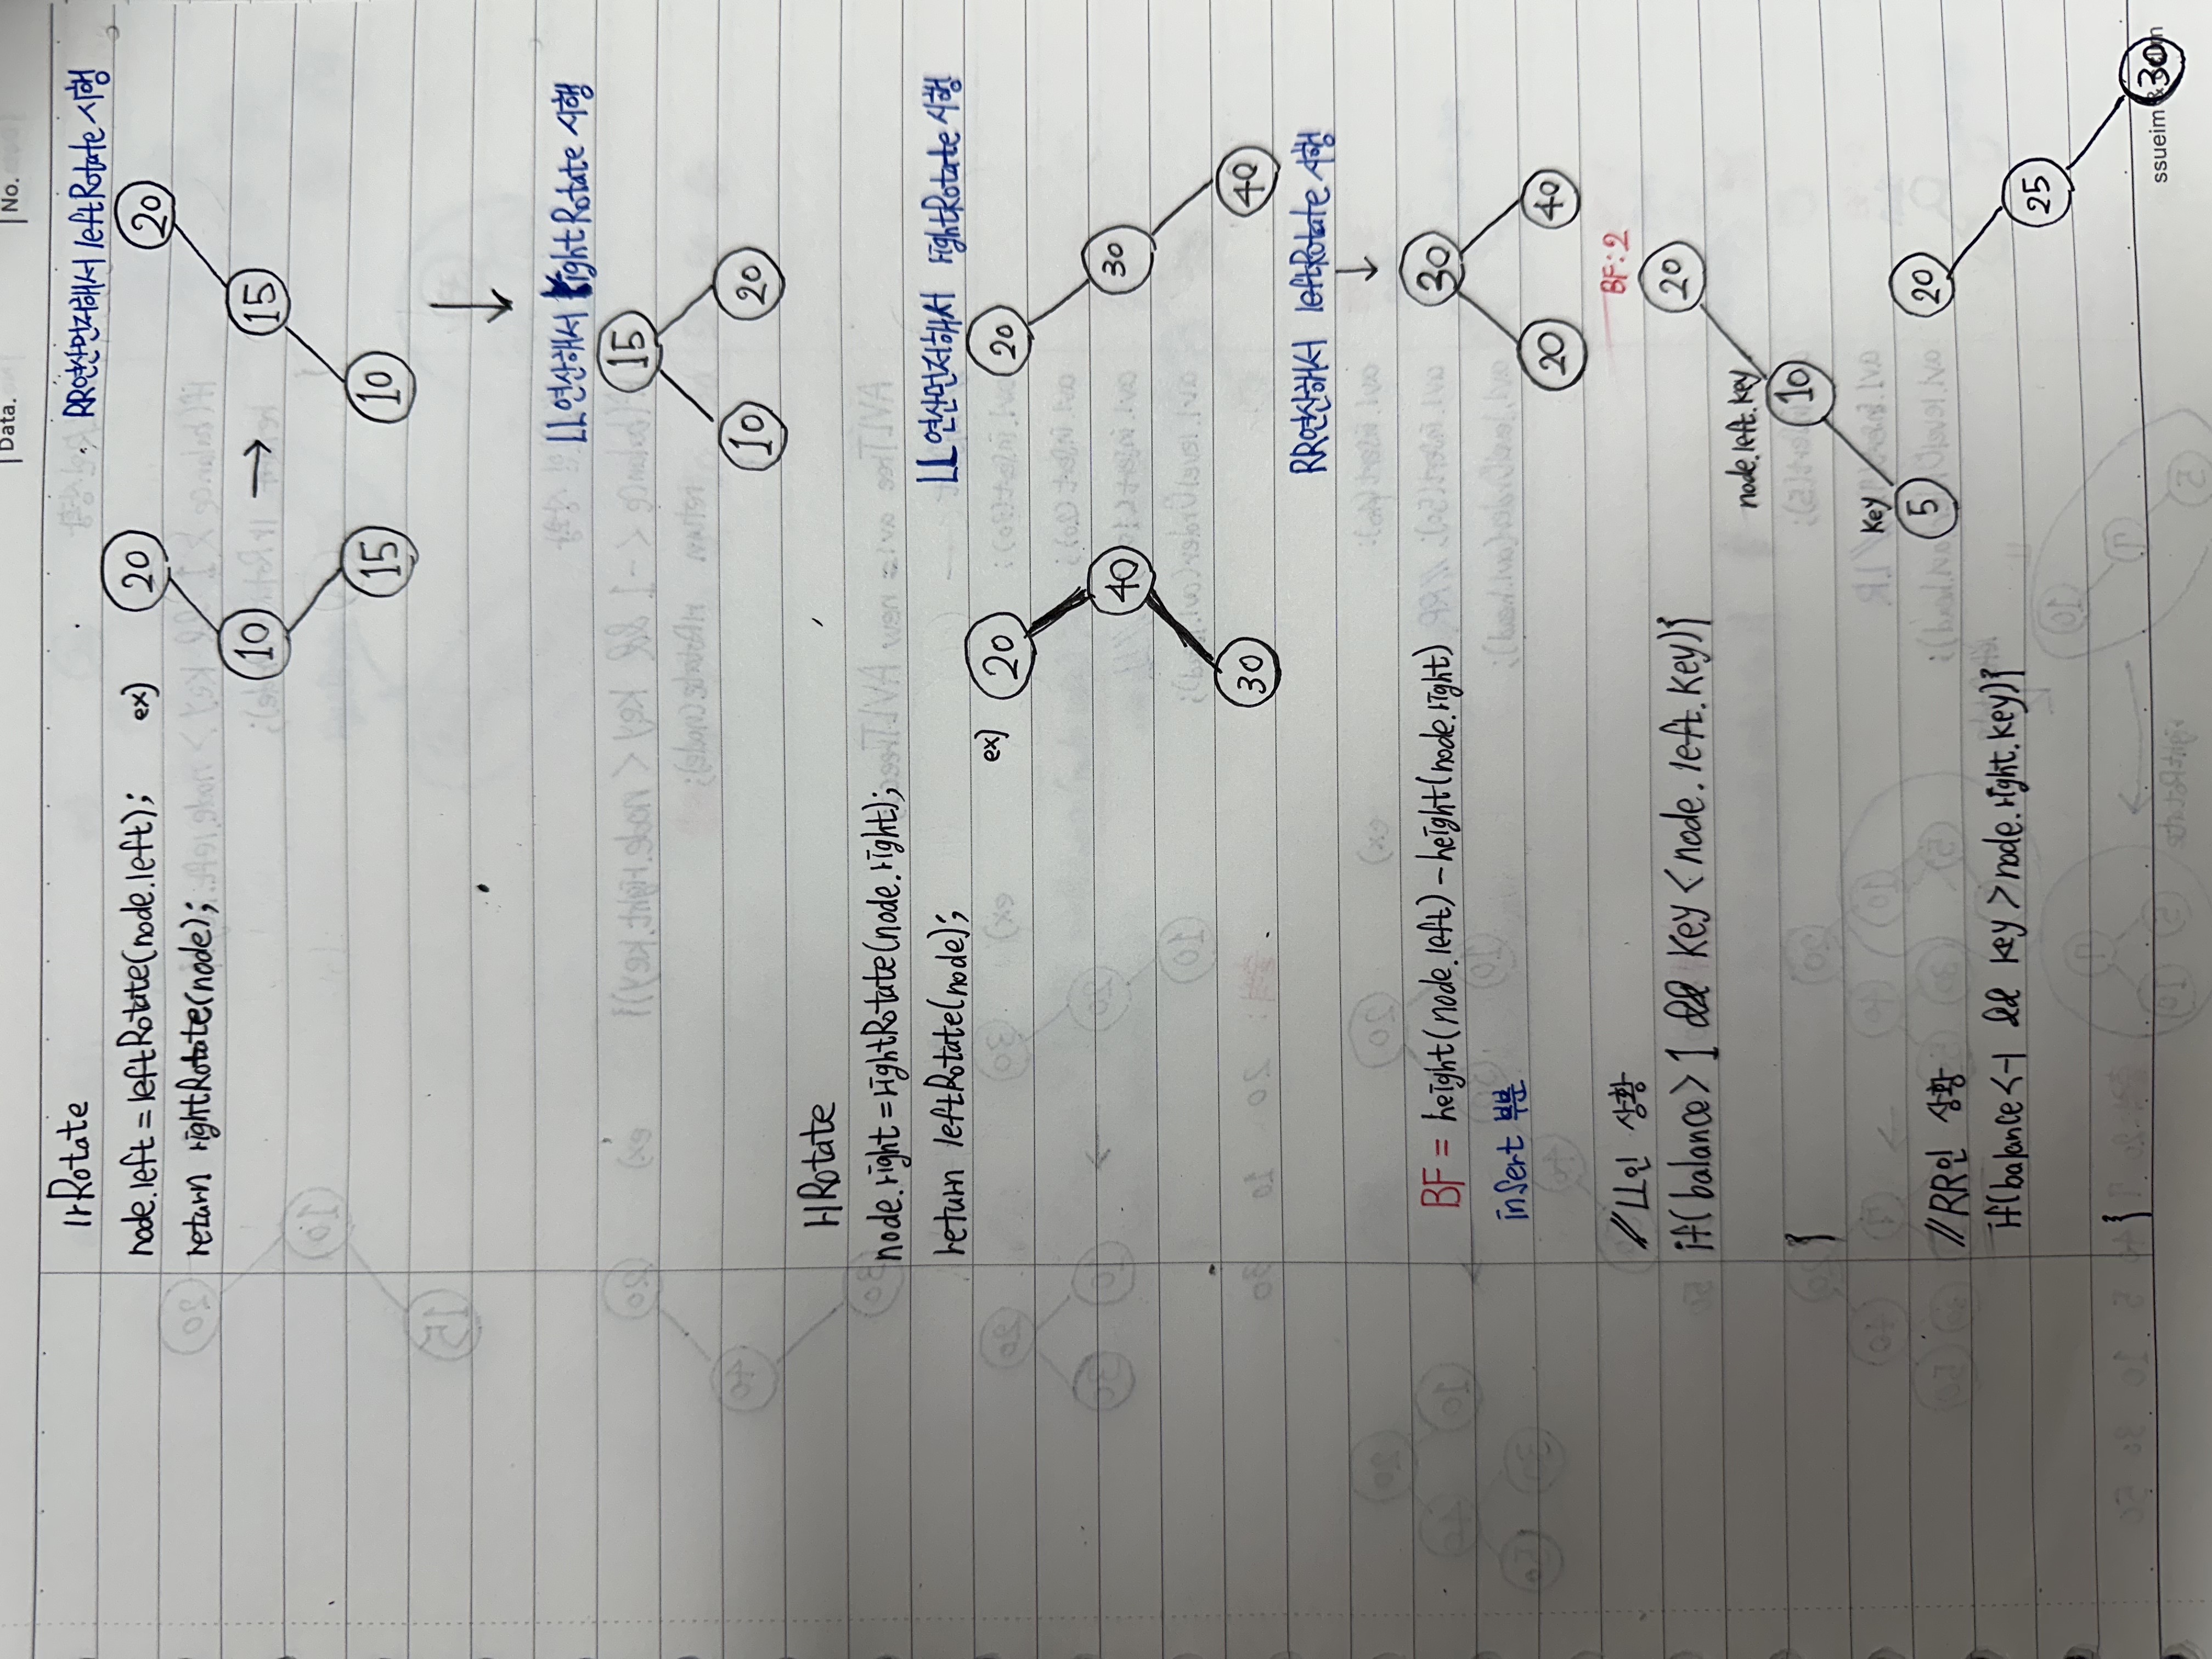 Data.
No.
lrRotate
node.left = leftRotate(node.left);
return rightRotate(node);
ex)
RR연산먼저해서 leftRotate 시행
20
10
15
→
20
15
10
↓
LL연산해서 rightRotate 시행
15
10
20
rlRotate
node.right = rightRotate(node.right);
return leftRotate(node);
LL연산먼저해서 rightRotate 시행
ex)
20
40
30
20
30
40
RR연산해서 leftRotate 시행
↓
30
20
40
BF = height(node.left) - height(node.right)
insert 부분
//LL인 상황
if(balance > 1 && key < node.left.key){
}
BF:2
20
node.left.key
10
key
5
//RR인 상황
if(balance <-1 && key > node.right.key){
}
20
25
30
ssueim &